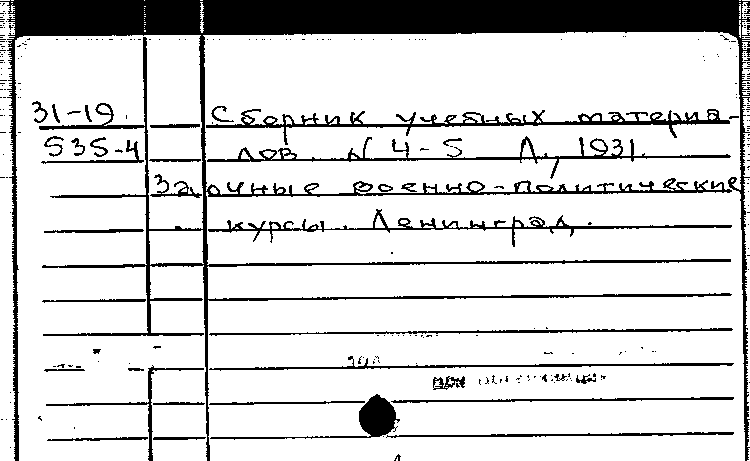 31-19 Сборник учебных материа-
535-4 лов N 4-5 Л., 1931.
Заочные военно-политические
курсы. Ленинград.